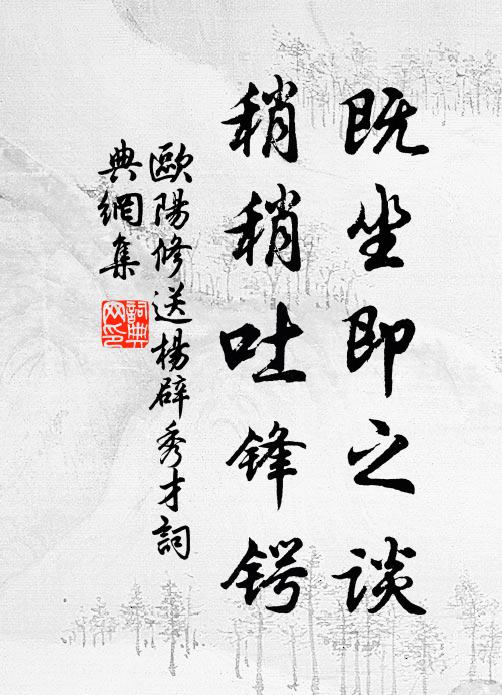 既坐即之谈
稍稍吐锋锷
歐陽修送楊辟秀才詞
典網集
詞典網印